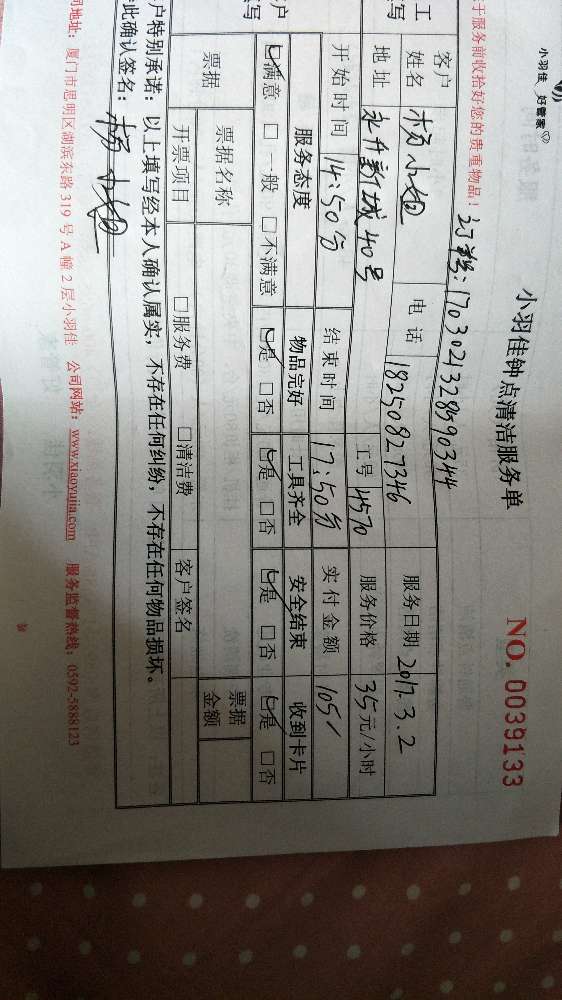 小羽佳 好管家
小羽佳钟点清洁服务单
NO. 0039133
于服务前收拾好您的贵重物品！
订单: 1703021328590344
工
写
客户
姓名 杨小姐 电话 18250827346 服务日期 2017.3.2
地址 永升新城40号 工号 4570 服务价格 35元/小时
开始时间 14:50分 结束时间 17:50分 实付金额 105/
户
写
服务态度 物品完好 工具齐全 安全结束 收到卡片
☑满意 □一般 □不满意 ☑是 □否 ☑是 □否 ☑是 □否 ☑是 □否
票据 票据名称 票据
金额
开票项目 □服务费 □清洁费 客户签名
户特别承诺：以上填写经本人确认属实，不存在任何纠纷，不存在任何物品损坏。
此确认签名：杨小姐
司地址：厦门市思明区湖滨东路 319 号 A 幢 2 层小羽佳 公司网站：www.xiaoyujia.com 服务监督热线：0592-5888123